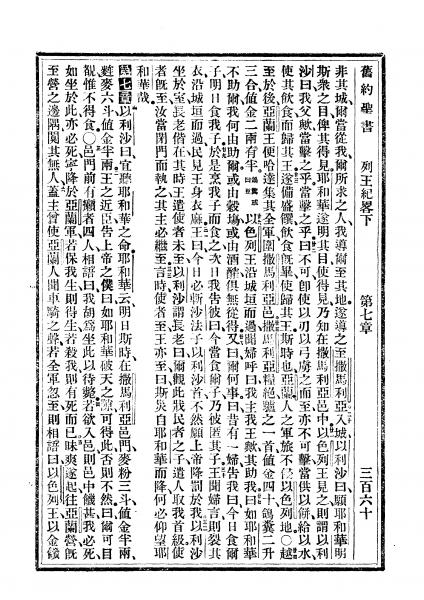 舊約聖書 列王紀畧下 第七章 三百六十
非其城爾當從我爾所求之人我導爾至其地遂導之至撒馬利亞入城以利沙曰願耶和華明
斯衆之目俾其得見耶和華遂明其目使得見乃知在撒馬利亞邑中以色列王見之則謂以利
沙曰我父歟當擊之乎當擊之乎曰不可卽使以刀以弓虜之而至亦不可擊當供以餅給以水
使其飲食而歸其王遂備盛饌飲食旣畢使歸其王斯時也亞蘭人之軍旅不侵以色列地○越
至於後亞蘭王便哈達集其全軍圍撒馬利亞邑撒馬利亞糧絶驢之一首値金四十鴿糞二升
三合値金二兩有半以色列王沿城垣而過聞婦呼曰我主我王歟其助我曰如耶和華
不助爾我何由助爾或由穀塲或由酒醡俱無從得又曰爾何事曰昔有一婦告我曰今日食爾
子明日食我子於是烹我子而食之次日我告彼曰今當食爾子乃彼匿其子王聞婦言則裂其
衣沿城垣而過民見王身衣麻王曰今日必斬沙法子以利沙首不然願上帝降罰於我以利沙
坐於室長老偕在其時王遣使者未至以利沙謂長老曰爾觀此戕民者之子遣人取我首級使
者旣至汝當閉門而執之其主必繼至言時使者至王亦至曰斯災自耶和華而降何必仰望耶
和華哉
第七章以利沙曰宜聽耶和華之命耶和華云明日斯時在撒馬利亞邑門麥粉三斗値金半兩
麰麥六斗値金半兩王之近臣告上帝之僕曰如耶和華破天之隙可得此否則不然曰爾可目
覩惟不得食○邑門前有癩者四人相語曰我胡爲坐此以待斃若欲入邑則邑中饑甚我必死
如坐於此亦必死寧降於亞蘭軍若保我生則得生若殺我則有死而已昧爽遂起往亞蘭營旣
至營之邊隅閴其無人蓋主曾使亞蘭人聞車騎之聲若全軍忽至則相語曰以色列王以金錢